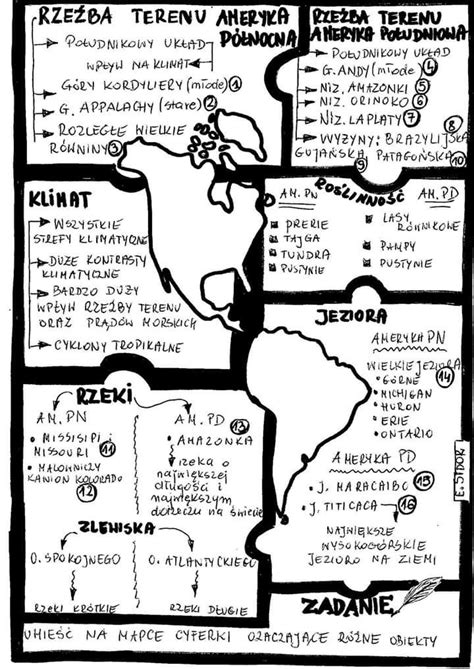 RZEŹBA TERENU AMERYKA
PÓŁNOCNA
POŁUDNIKOWY UKŁAD
WPŁYW NA KLIMAT
GÓRY KORDYLIERY (młode) 1
G. APPALACHY (stare) 2
ROZLEGŁE WIELKIE
RÓWNINY 3
RZEŹBA TERENU
AMERYKA POŁUDNIOWA
POŁUDNIKOWY UKŁAD
G. ANDY (młode) 4
NIZ. AMAZONKI 5
NIZ. ORINOKO 6
NIZ. LAPLATY 7
WYŻYNY: BRAZYLIJSKA 8
GUJAŃSKA 9 PATAGOŃSKA 10
KLIMAT
WSZYSTKIE
STREFY KLIMATYCZNE
DUŻE KONTRASTY
KLIMATYCZNE
BARDZO DUŻY
WPŁYW RZEŹBY TERENU
ORAZ PRĄDÓW MORSKICH
CYKLONY TROPIKALNE
ROŚLINNOŚĆ
AM. PN
PRERIE
TAJGA
TUNDRA
PUSTYNIE
AM. PD
LASY
RÓWNIKOWE
PAMPY
PUSTYNIE
JEZIORA
AMERYKA PN
WIELKIE JEZIORA 14
GÓRNE
MICHIGAN
HURON
ERIE
ONTARIO
AMERYKA PD
J. MARACAIBO 15
J. TITICACA 16
NAJWIĘKSZE
WYSOKOGÓRSKIE
JEZIORO NA ZIEMI
E. SIDOR
RZEKI
AM. PN
MISSISIPI
MISSOURI 11
MALOWNICZY
KANION KOLORADO
12
AM. PD 13
AMAZONKA
rzeka o
największej
długości i
największym
dorzeczu na świecie
ZLEWISKA
O. SPOKOJNEGO
RZEKI KRÓTKIE
O. ATLANTYCKIEGO
RZEKI DŁUGIE
ZADANIE
UMIEŚĆ NA MAPCE CYFERKI OZACZAJĄCE RÓŻNE OBIEKTY